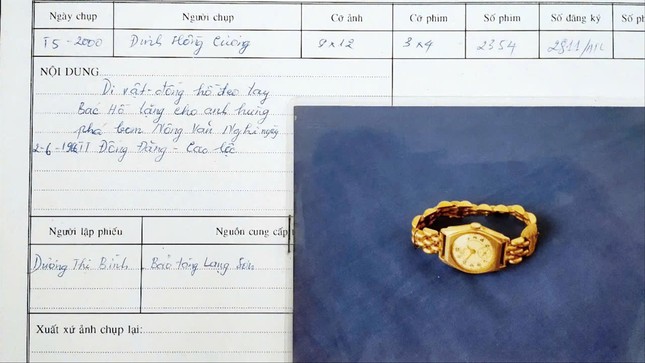 Ngày chụp Người chụp Cỡ ảnh Cỡ phim Số phim Số đăng ký Số ph
T5-2000 Đinh Hồng Cường 9x12 3x4 2354
NỘI DUNG
Di vật-đồng hồ đeo tay
Bác Hồ tặng cho anh hùng
phá bom Nông Văn Nghi ngày
TT Đồng Đăng - Cao Lộc
Người lập phiếu Nguồn cung cấp
Dương Thị Bình Bảo tàng Lạng Sơn
Xuất xứ ảnh chụp lại: